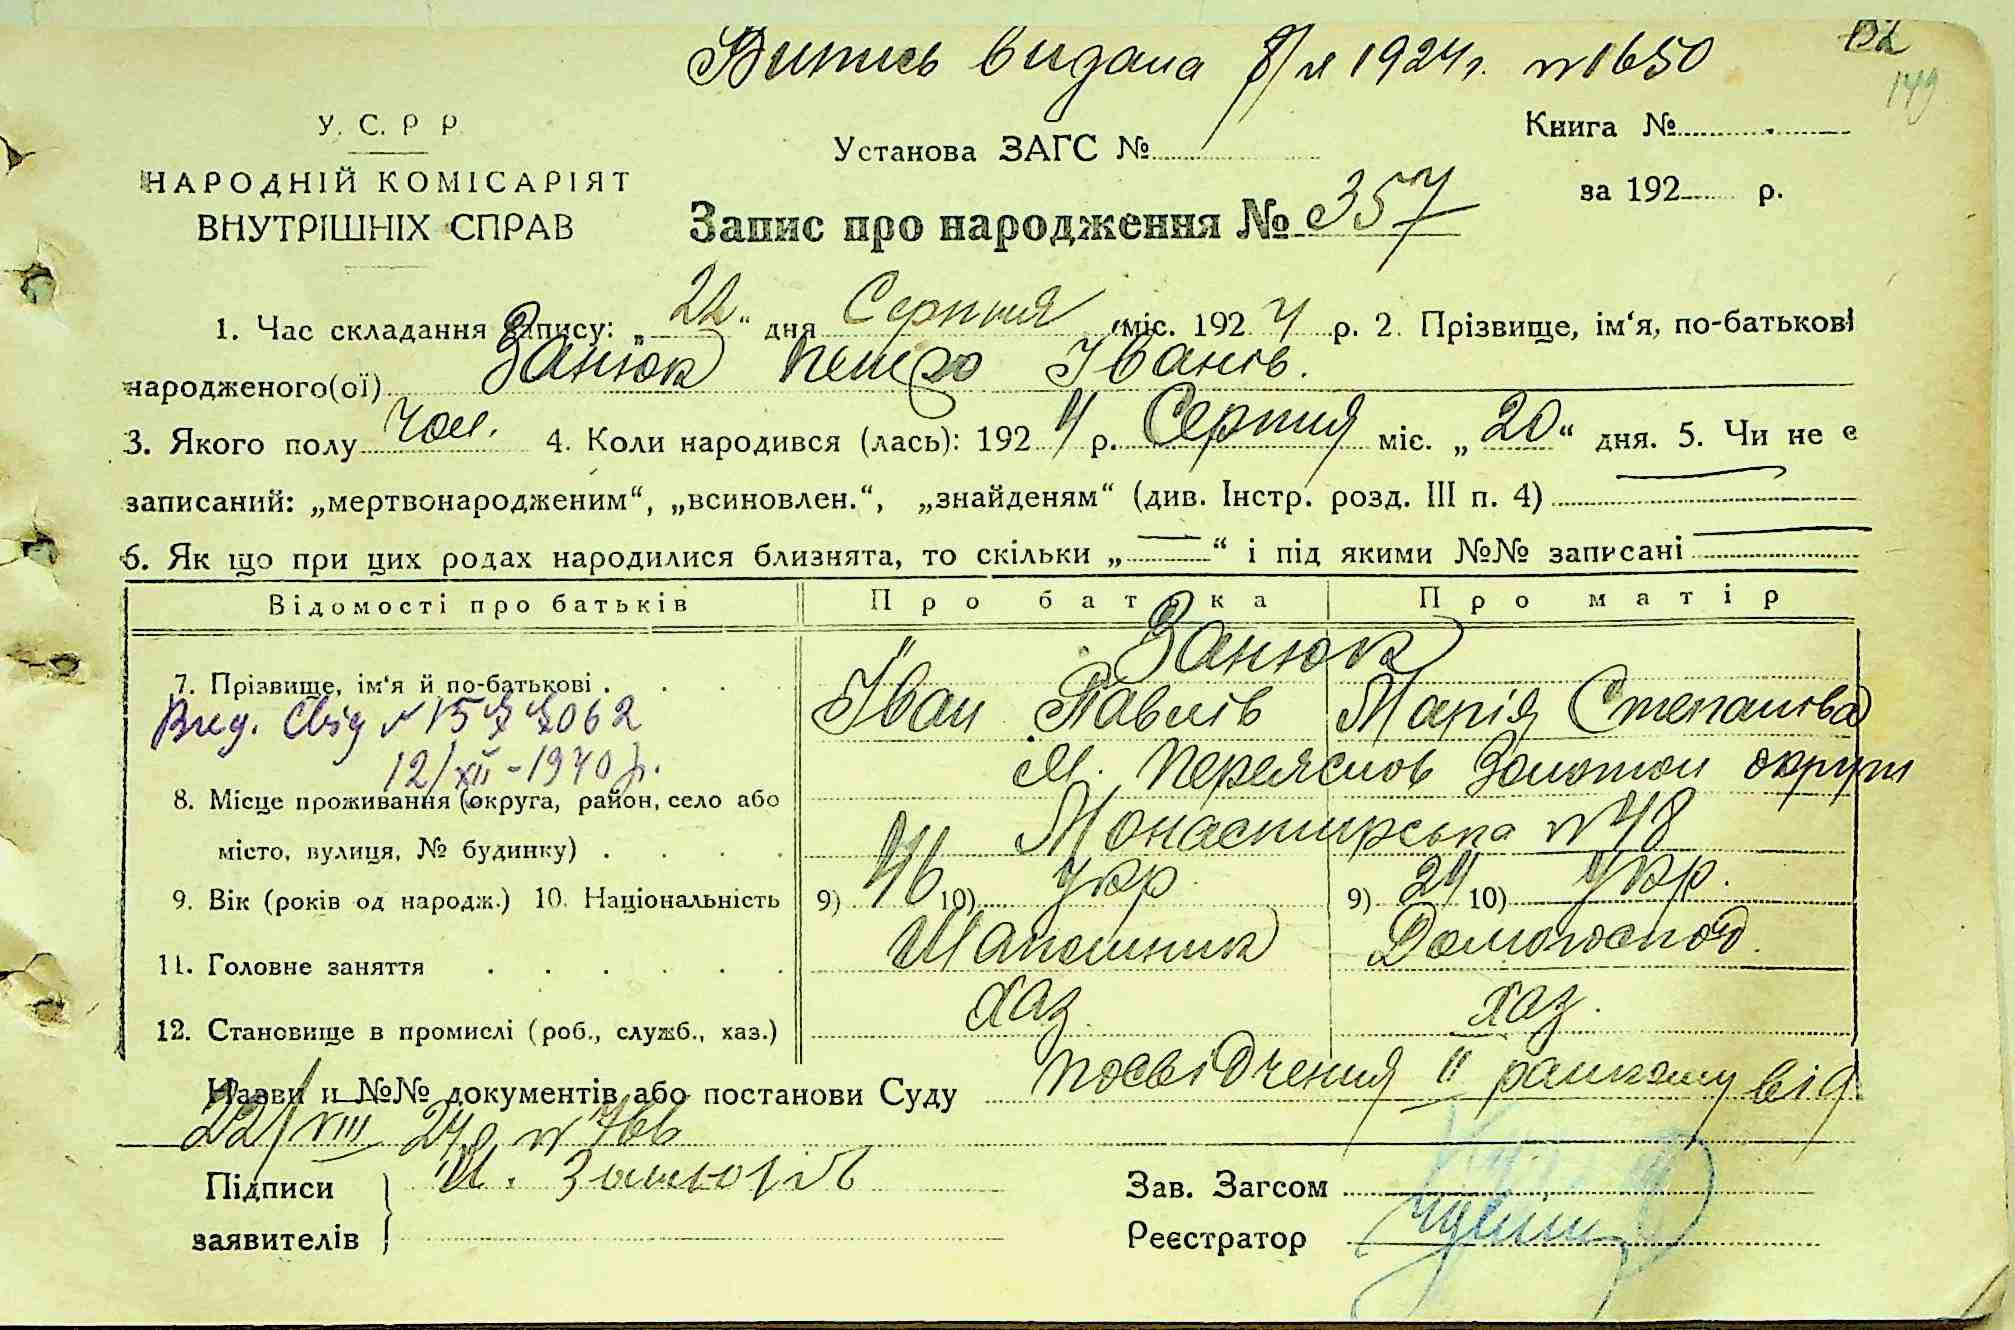 Витись видана 1924 г. №1650
149
У. С. Р Р
НАРОДНІЙ КОМІСАРІЯТ
ВНУТРІШНІХ СПРАВ
Установа ЗАГС №
Книга №
за 192 р.
Запис про народження № 357
1. Час складання запису: „22“ дня Серпня міс. 1924 р. 2. Прізвище, ім‘я, по-батькові
народженого(ої) Занюк Петро Іванів.
3. Якого полу чол. 4. Коли народився (лась): 1924 р. Серпня міс. „20“ дня. 5. Чи не є
записаний: „мертвонародженим“, „всиновлен.“, „знайденям“ (див. Інстр. розд. III п. 4)
6. Як що при цих родах народилися близнята, то скільки „—“ і під якими №№ записані
Відомості про батьків Про батька Про матір
Занюк
7. Прізвище, ім‘я й по-батькові Іван Павлів Марія Степанова
Вид. Свід №
12/XII-1940 р.
м. Переяслов Золотон округи
8. Місце проживання (округа, район, село або
місто, вулиця, № будинку) Монастирська №48
9. Вік (років од народж.) 10. Національність 9) 46 10) Укр 9) 24 10) Укр.
11. Головне заняття Шапошник Домогоспод.
12. Становище в промислі (роб., служб., хаз.) хаз. хаз.
Назви и №№ документів або постанови Суду посвідчення від
22/VIII 24р №766
Підписи
заявителів
Зав. Загсом
Реєстратор